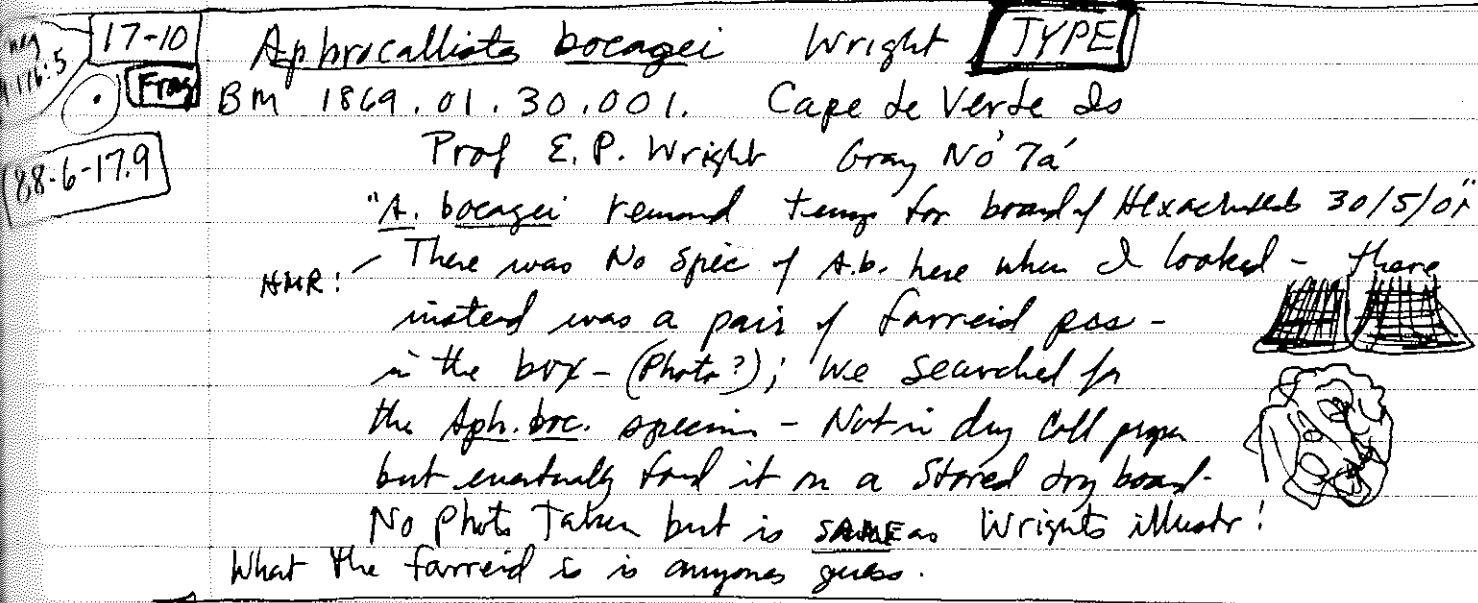 neg
116:5
17-10
Frag
88-6-17.9
Aphrocallistes bocagei Wright TYPE
BM 1869.01.30.001. Cape de Verde Is
Prof E.P. Wright Gray No 7a
"A. bocagei removed temp for board of Hexactinellids 30/5/01"
HMR: - There was No Spec of A.b. here when I looked - there
instead was a pair of farreid pcs -
in the box - (Photo?); We searched for
the Aph. boc. specimen - Not in dry Coll proper
but eventually found it on a Stored dry board.
No Photo Taken but is SAME as Wrights illustr!
What the farreid is is anyones guess.